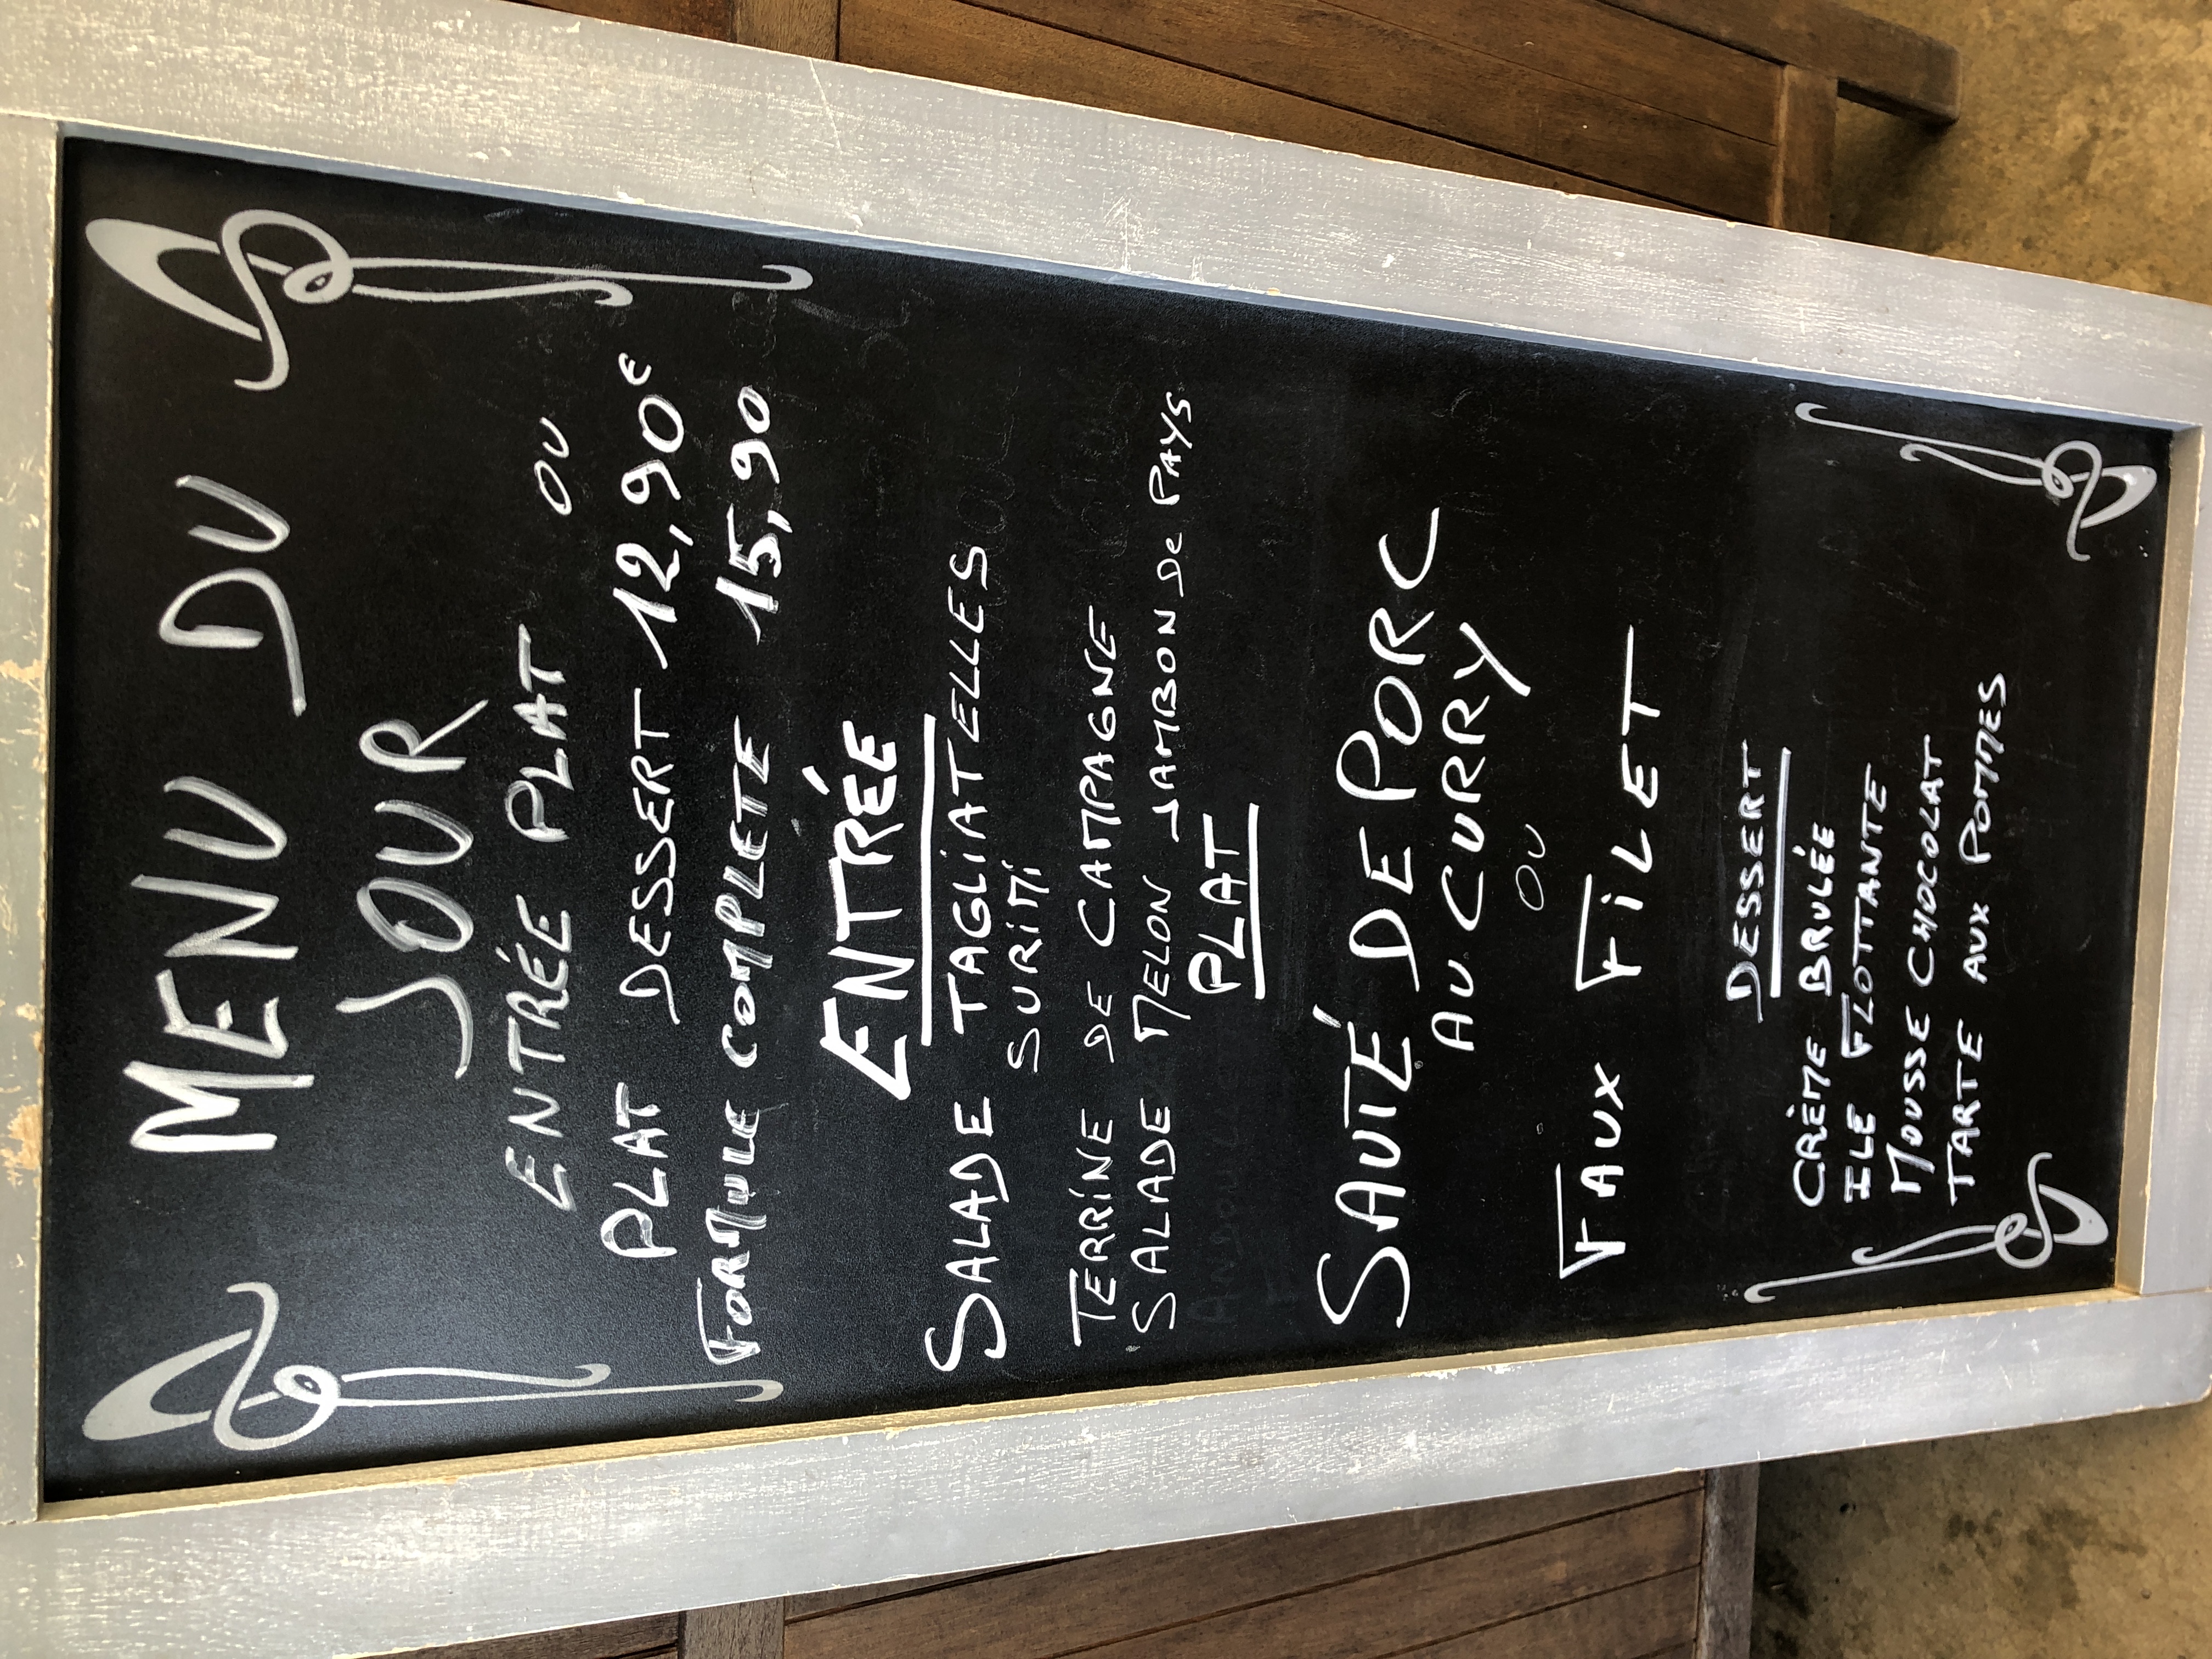 MENU DU
JOUR
ENTRÉE PLAT OU
PLAT DESSERT 12,90€
FORMULE COMPLETE 15,90
ENTRÉE
SALADE TAGLIATELLES
SURIMI
TERRINE DE CAMPAGNE
SALADE MELON JAMBON De PAYS
PLAT
SAUTÉ DE PORC
AU CURRY
OU
FAUX FILET
DESSERT
CRÈME BRULÉE
ILE FLOTTANTE
MOUSSE CHOCOLAT
TARTE AUX POMMES